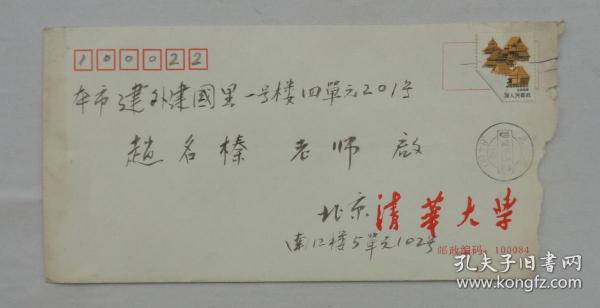 100022
本市建外建國里一号楼四單元201号
趙名榛 老师 啟
北京清華大學
南12楼5單元102号
邮政编码：100084
中国人民邮政
孔夫子旧书网
www.kongfz.com